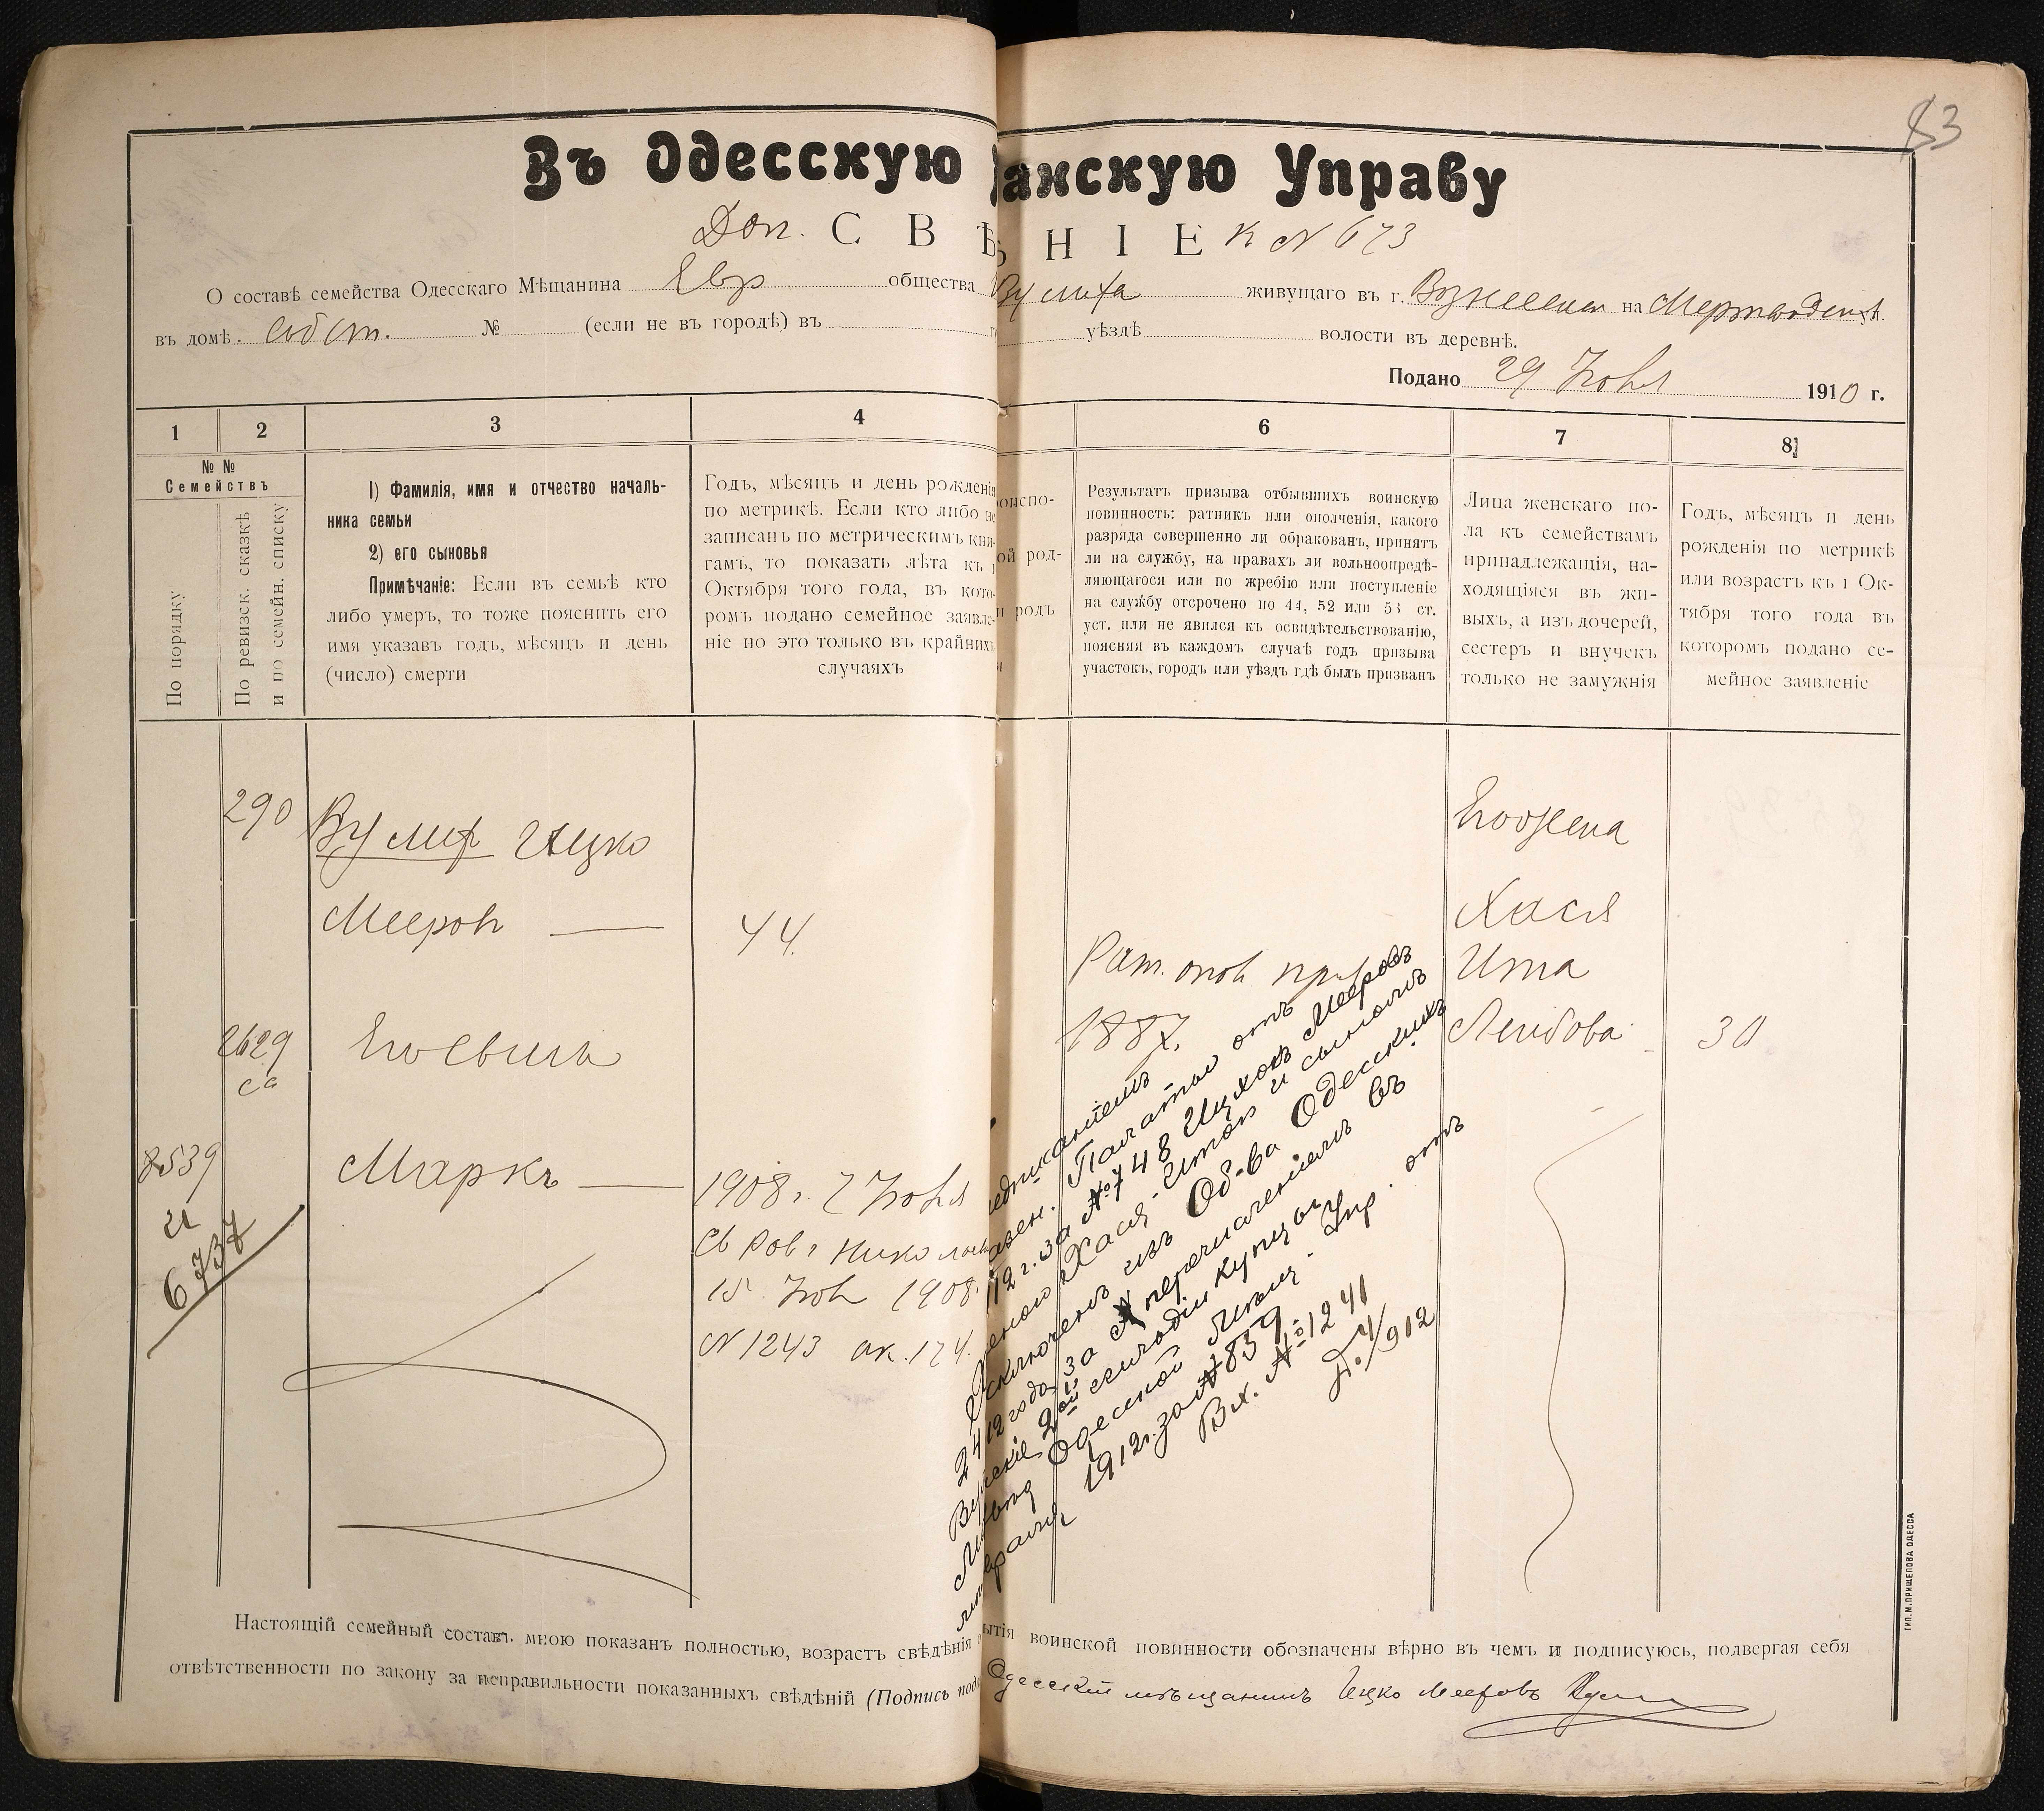 83
Въ Одесскую анскую Управу
Доп. СВѢ НІЕ к N 673
О составѣ семейства Одесскаго Мѣщанина Евр общества живущаго въ г. на
въ домѣ собст. № (если не въ городѣ) въ уѣздѣ волости въ деревнѣ.
Подано 29 1910 г.
1 2 3 4 6 7 8
№ №
Семействъ
По порядку
По ревизск. сказкѣ
и по семейн. списку
1) Фамилія, имя и отчество началь-
ника семьи
2) его сыновья
Примѣчаніе: Если въ семьѣ кто
либо умеръ, то тоже пояснить его
имя указавъ годъ, мѣсяцъ и день
(число) смерти
Годъ, мѣсяцъ и день рожденія
по метрикѣ. Если кто либо не
записанъ по метрическимъ кни-
гамъ, то показать лѣта къ 1
Октября того года, въ кото-
ромъ подано семейное заявле-
ніе но это только въ крайнихъ
случаяхъ
оиспо-
ой род-
и родъ
Результатъ призыва отбывшихъ воинскую
повинность: ратникъ или ополченія, какого
разряда совершенно ли обракованъ, принятъ
ли на службу, на правахъ ли вольноопредѣ-
ляющагося или по жребію или поступленіе
на службу отсрочено по 44, 52 или 53 ст.
уст. или не явился къ освидѣтельствованію,
поясняя въ каждомъ случаѣ годъ призыва
участокъ, городъ или уѣздъ гдѣ былъ призванъ
Лица женскаго по-
ла къ семействамъ
принадлежащія, на-
ходящіяся въ жи-
выхъ, а изъ дочерей,
сестеръ и внучекъ
только не замужнія
Годъ, мѣсяцъ и день
рожденія по метрикѣ
или возрастъ къ 1 Ок-
тября того года въ
которомъ подано се-
мейное заявленіе
290 Вулих Ицко
Мееров 44.
2629
са Его сынъ
8539
и
6737
Маркъ 1908 г. 2
15 1908
N 1243 ак. 174.
Рат. опол
1887.
Его жена
Хася
Ита
Лейбова 30
Палатою отъ
12 г. за № 748 Ицхокъ Мееровъ
Хася-Итой и сыномъ
изъ Об-ва Одесскихъ
года за № перечисленіемъ въ
2ой гильдіи купцы
Одесской Мѣщ. Упр. отъ
1912 г. за № 839
Вх. № 1241
/912
Настоящій семейный составъ мною показанъ полностью, возрастъ свѣдѣнія о ытія воинской повинности обозначены вѣрно въ чемъ и подписуюсь, подвергая себя
отвѣтственности по закону за неправильности показанныхъ свѣдѣній (Подпись под Одесскій мѣщанинъ Ицко Мееровъ
ТИП. М. ПРИЩЕПОВА ОДЕССА